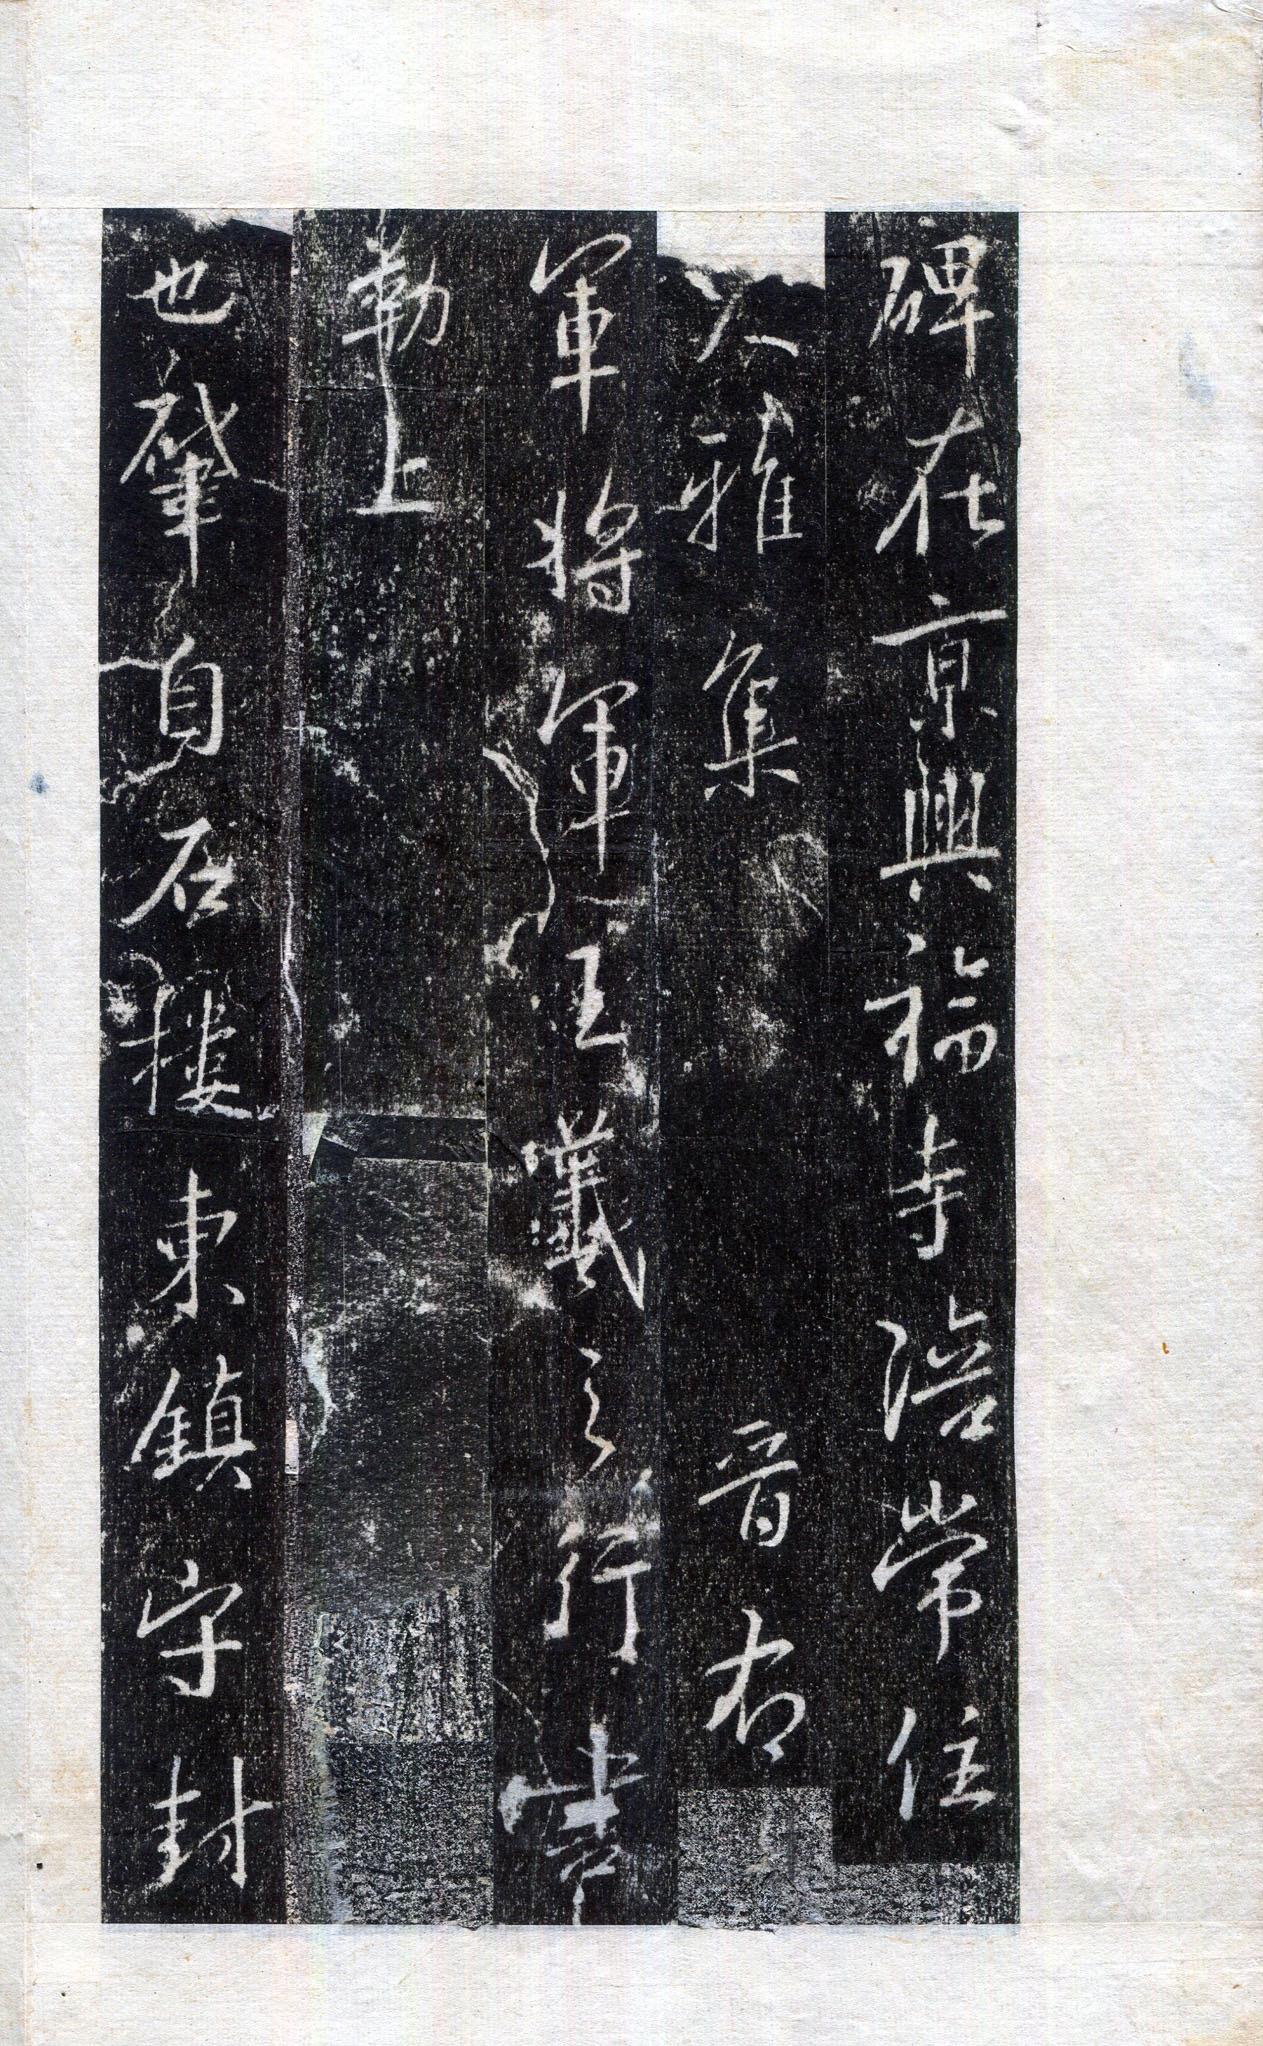 碑在京興福寺陪常住
大雅集　晉右
軍將軍王羲之行書
勒上
也肇自石樓東鎮守封